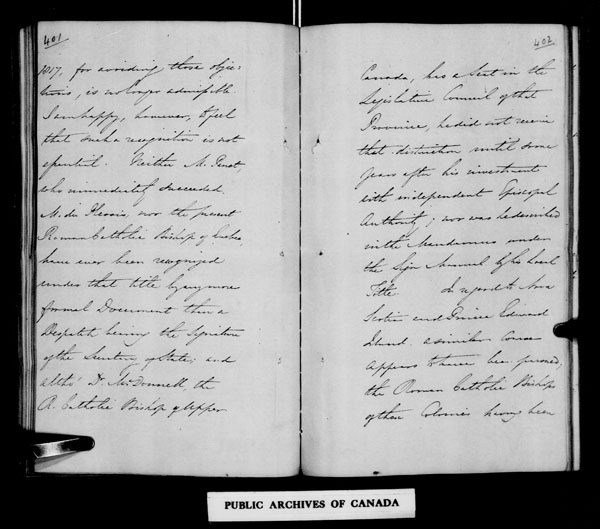 401
1017, for avoiding those objec-
tions, is no longer admissible.
I am happy, however, to feel
that such a recognition is not
essential. Neither M. Panet,
who immediately succeeded
M. du Plessis, nor the present
Roman Catholic Bishop of Quebec,
have ever been recognized
under that title by any more
formal Document than a
Despatch bearing the Signature
of the Secretary of State; and
altho' Dr. McDonnell, the
R. Catholic Bishop of Upper
402
Canada, has a Seat in the
Legislative Council of that
Province, he did not receive
that distinction until some
years after his investment
with independent Episcopal
Authority; nor was he described
in the Mandamus under
the Sign Manual by his Local
Title. In regard to Nova
Scotia and Prince Edward
Island a similar course
appears to have been pursued,
the Roman Catholic Bishops
of these Colonies having been
PUBLIC ARCHIVES OF CANADA